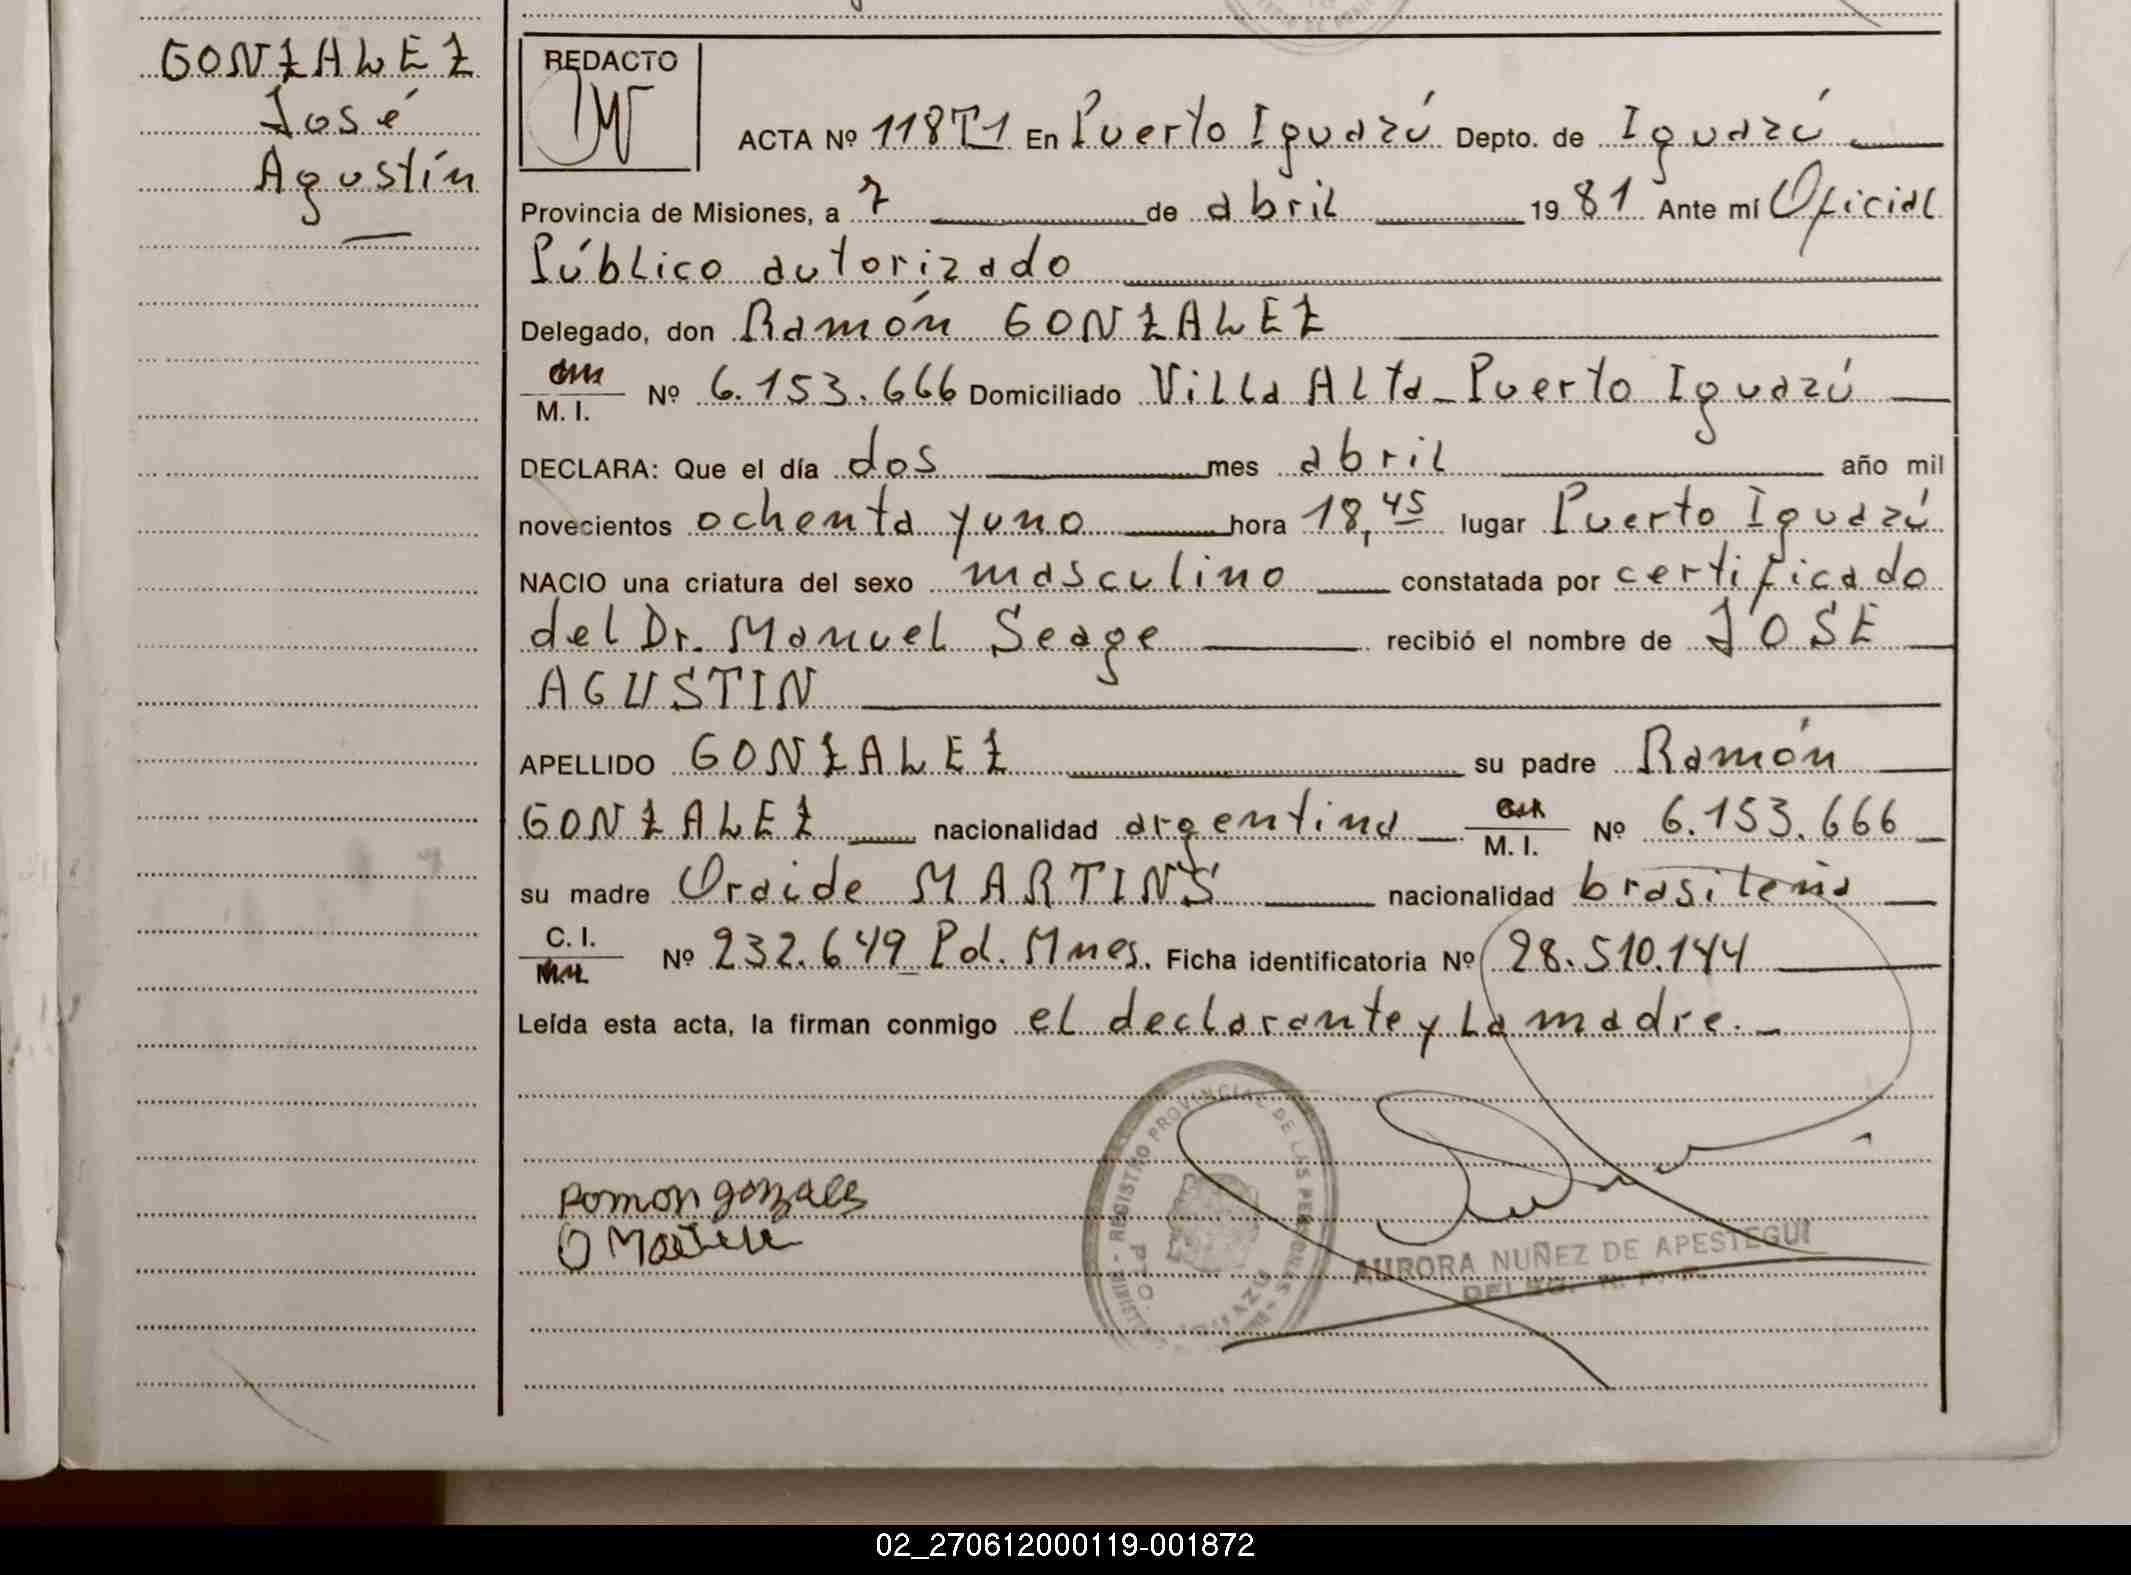 GONZALEZ
José
Agustín
REDACTO
ACTA Nº 118T1 En Puerto Iguazú Depto. de Iguazú
Provincia de Misiones, a 7 de abril 1981 Ante mí Oficial
Público autorizado
Delegado, don Ramón GONZALEZ
M. I. Nº 6.153.666 Domiciliado Villa Alta - Puerto Iguazú
DECLARA: Que el día dos mes abril año mil
novecientos ochenta y uno hora 18,45 lugar Puerto Iguazú
NACIO una criatura del sexo masculino constatada por certificado
del Dr. Manuel Seage recibió el nombre de JOSE
AGUSTIN
APELLIDO GONZALEZ su padre Ramón
GONZALEZ nacionalidad argentina M. I. Nº 6.153.666
su madre Oraide MARTINS nacionalidad brasileña
C. I. Nº 232.649 Pol. Mnes. Ficha identificatoria Nº 28.510.144
Leída esta acta, la firman conmigo el declarante y la madre.-
REGISTRO PROVINCIAL DE LAS PERSONAS
Pomon gonzales
AURORA NUÑEZ DE APESTEGUI
02_270612000119-001872